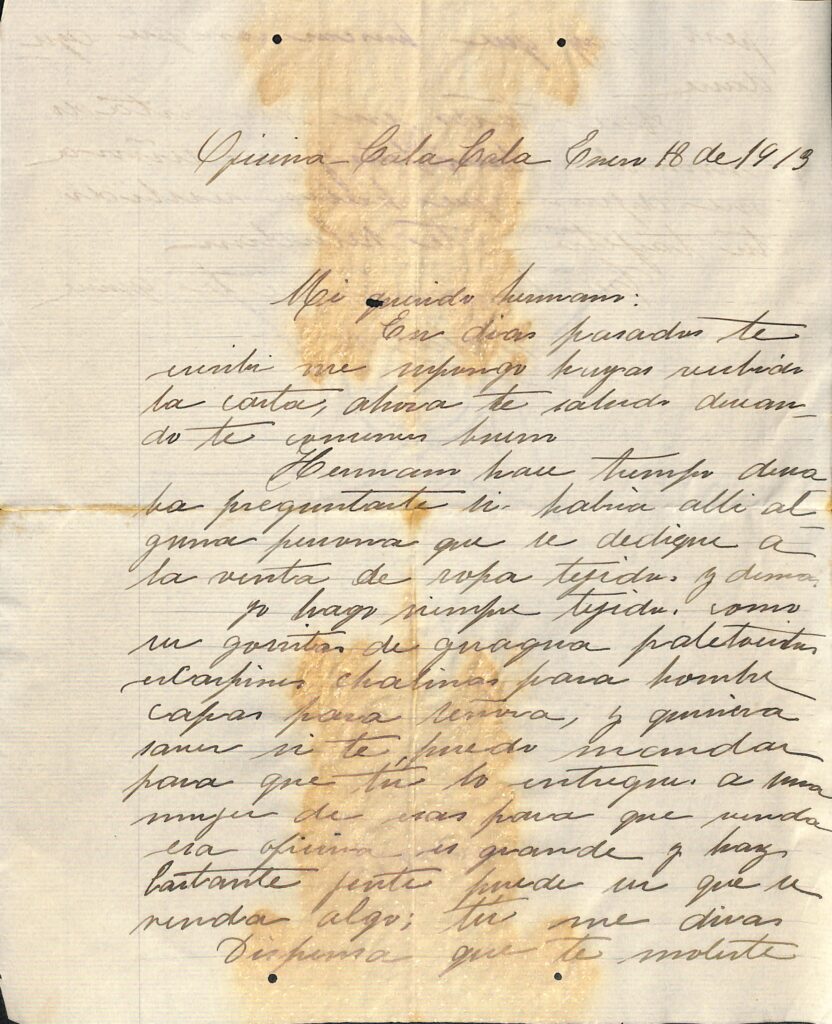 Oficina Cala Cala Enero 18 de 1913
Mi querido hermano:
En dias pasados te
escribi me supongo hayas recibido
la carta, ahora te saludo desean-
do te conserves bueno
Hermano hace tiempo desea
ba preguntarte si habia alli al
guna persona que se dedique á
la venta de ropa tejidos y demas
yo hago siempre tejidos como
ser gorritos de guagua paletocitos
escarpines chalinas para hombre
capas para señora, y quisiera
saver si te puedo mandar
para que tú lo entregues a una
mujer de esas para que venda
esa oficina es grande y hay
bastante jente puede ser que se
venda algo; tú me diras
Dispensa que te moleste